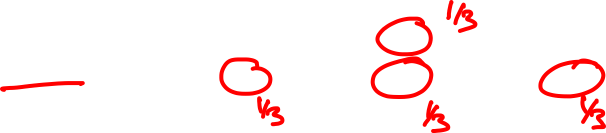 1/3
1/3 1/3 1/3